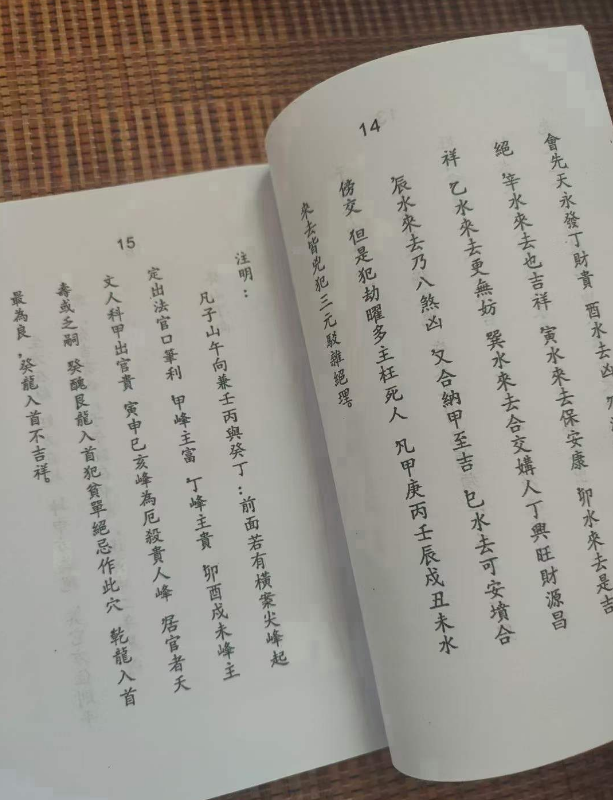 14
會先天永發丁財貴 酉水去凶
絕 辛水來去也吉祥 寅水來去保安康 卯水去是吉
祥 乙水來去更無妨 巽水來去合交媾人丁興旺財源昌
辰水來去乃八煞凶 又合納甲至吉 巳水去可安墳合
傍交 但是犯劫曜多主枉死人 凡甲庚丙壬辰戌丑未水
來去皆兇犯三元駁雜絕理。
15
注明：
凡子山午向兼壬丙與癸丁：前面若有橫案尖峰起
定出法官口筆利 甲峰主富 丁峰主貴 卯酉戌未峰主
文人科甲出官貴 寅申巳亥峰為厄殺貴人峰 居官者夭
壽或乏嗣 癸醜艮龍入首犯貧單絕忌作此穴 乾龍入首
最為良，癸龍入首不吉祥。